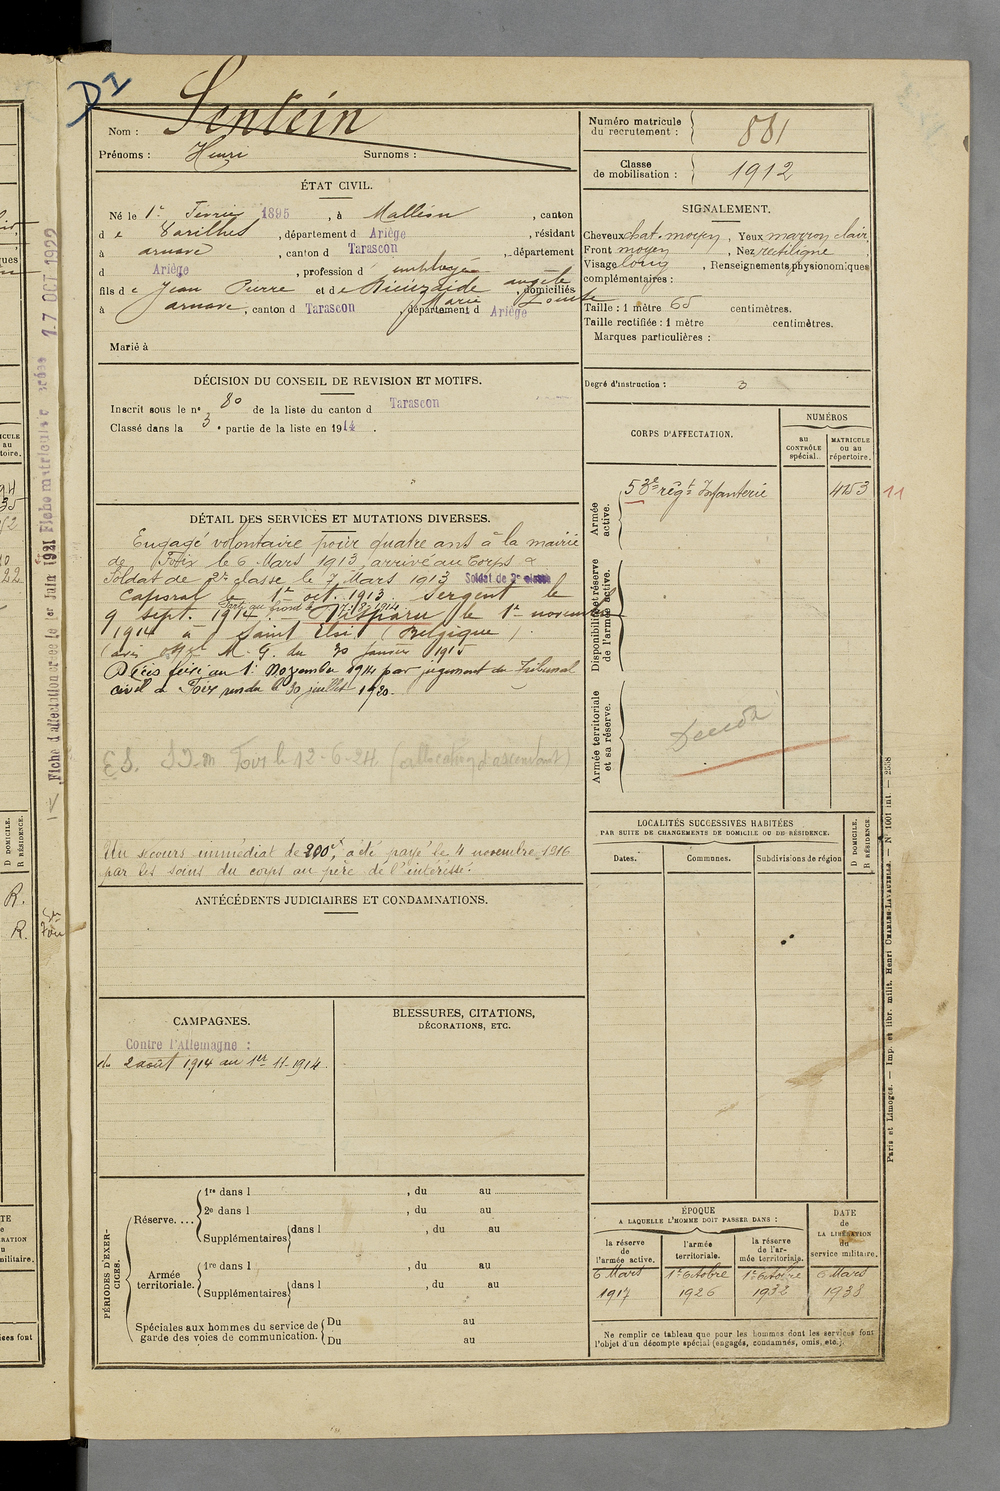 DI
Nom : Sentein
Prénoms : Henri Surnoms :
Numéro matricule du recrutement : 881
Classe de mobilisation : 1912
ÉTAT CIVIL.
Né le 1er Février 1895, à Malléon, canton
de Varilhes, département d Ariège, résidant
à arnave, canton d Tarascon, département
d Ariège, profession d employé
fils de Jean Pierre et de angèle Marie Louise, domiciliés
à arnave, canton d Tarascon, département d Ariège
Marié à
SIGNALEMENT.
Cheveux chat. moyen, Yeux marron clair
Front moyen, Nez rectiligne
Visage long, Renseignements physionomiques
complémentaires :
Taille : 1 mètre 65 centimètres.
Taille rectifiée : 1 mètre centimètres.
Marques particulières :
Degré d'instruction : 3
DÉCISION DU CONSEIL DE REVISION ET MOTIFS.
Inscrit sous le no 80 de la liste du canton d Tarascon
Classé dans la 3e partie de la liste en 1914.
CORPS D'AFFECTATION.
NUMÉROS
au CONTRÔLE spécial.
MATRICULE ou au répertoire.
Armée active.
53e régt Infanterie 4153 11
Disponibilité et réserve de l'armée active.
Armée territoriale et sa réserve.
DÉTAIL DES SERVICES ET MUTATIONS DIVERSES.
Engagé volontaire pour quatre ans à la mairie
de Foix le 6 Mars 1913, arrivé au Corps &
Soldat de 2e classe le 7 Mars 1913 Soldat de 2e classe
Caporal le 1er oct. 1913. Sergent le
9 sept. 1914. Disparu le 1er novembre
Parti au front
1914 à Saint Eloi (Belgique).
(avis M. G. du 30 janvier 1915
Décès fixé au 1er Novembre 1914 par jugement du Tribunal
civil de Foix rendu le 30 juillet 1920.
le 12-6-24 (allocation d'ascendant)
Un secours immédiat de 200f, a été payé le 4 novembre 1916
par les soins du corps au père de l'intéressé.
Décédé
LOCALITÉS SUCCESSIVES HABITÉES
PAR SUITE DE CHANGEMENTS DE DOMICILE OU DE RÉSIDENCE.
D DOMICILE.
R RÉSIDENCE.
Dates. Communes. Subdivisions de région
ANTÉCÉDENTS JUDICIAIRES ET CONDAMNATIONS.
CAMPAGNES.
Contre l'Allemagne :
du 2 août 1914 au 1er-11-1914.
BLESSURES, CITATIONS,
DÉCORATIONS, ETC.
PÉRIODES D'EXERCICES.
Réserve....
1re dans l , du au
2e dans l , du au
Supplémentaires dans l , du au
Armée territoriale.
1re dans l , du au
Supplémentaires dans l , du au
Spéciales aux hommes du service de garde des voies de communication.
Du au
Du au
ÉPOQUE
A LAQUELLE L'HOMME DOIT PASSER DANS :
la réserve de l'armée active.
l'armée territoriale.
la réserve de l'armée territoriale.
DATE de LA LIBÉRATION du service militaire.
6 Mars 1917
1er Octobre 1926
1er Octobre 1932
6 Mars 1938
Ne remplir ce tableau que pour les hommes dont les services font
l'objet d'un décompte spécial (engagés, condamnés, omis, etc.).
Paris et Limoges. — Imp. et libr. milit. Henri CHARLES-LAVAUZELLE. — N° 1001 int. — 2558
Fiche d'affectation créée le 1er Juin 1921 Fiche matriculaire créée 17 OCT 1922
D DOMICILE.
R RÉSIDENCE.
R.
R.